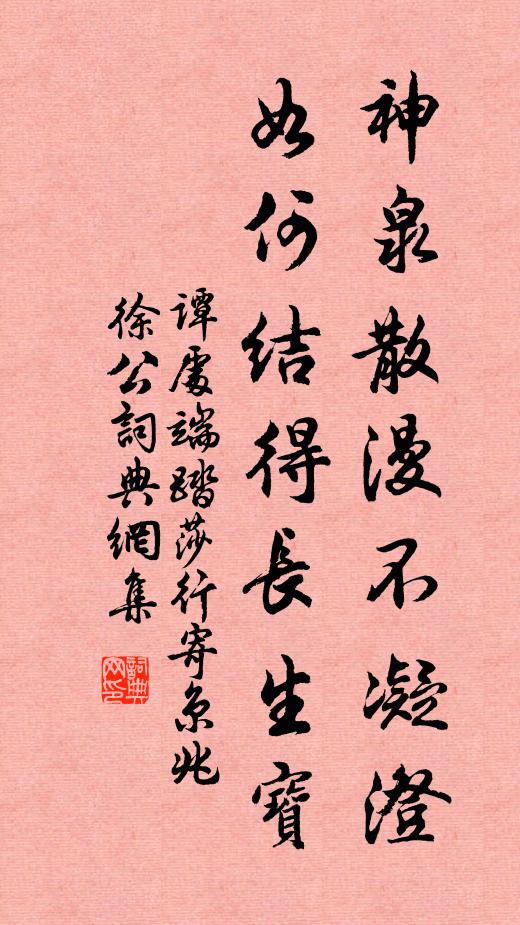 神泉散漫不凝澄
如何结得長生寶
谭處端踏莎行寄京兆
徐公詞典網集
詞典网印